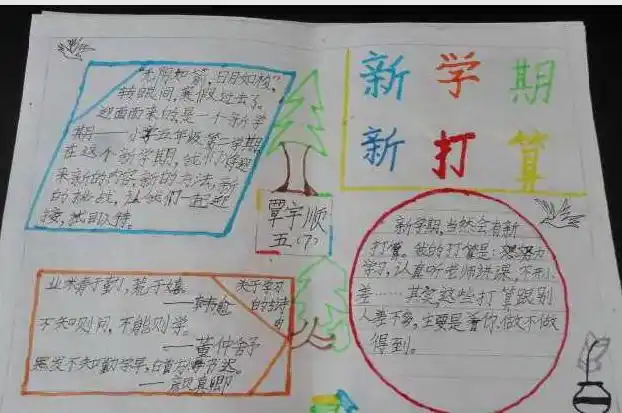 新学期
新打算
"光阴如箭,日月如梭",
转眼间,寒假过去了,
迎面而来的是一个新学
期——小学五年级第二学期,
在这个新学期,我们将迎
来新的内容,新的方法,新
的挑战,让我们一起迎
接,拭目以待。
覃宇顺
五(7)
业精于勤,荒于嬉
——韩愈
不知则问,不能则学。
——董仲舒
黑发不知勤学早,白首方悔读书迟。
——颜真卿
关于学习
的古诗
新学期,当然会有新
打算。我的打算是:努力
学习,认真听老师讲课,不开小
差……其实这些打算跟别
人差不多,主要是看你做不做
得到。